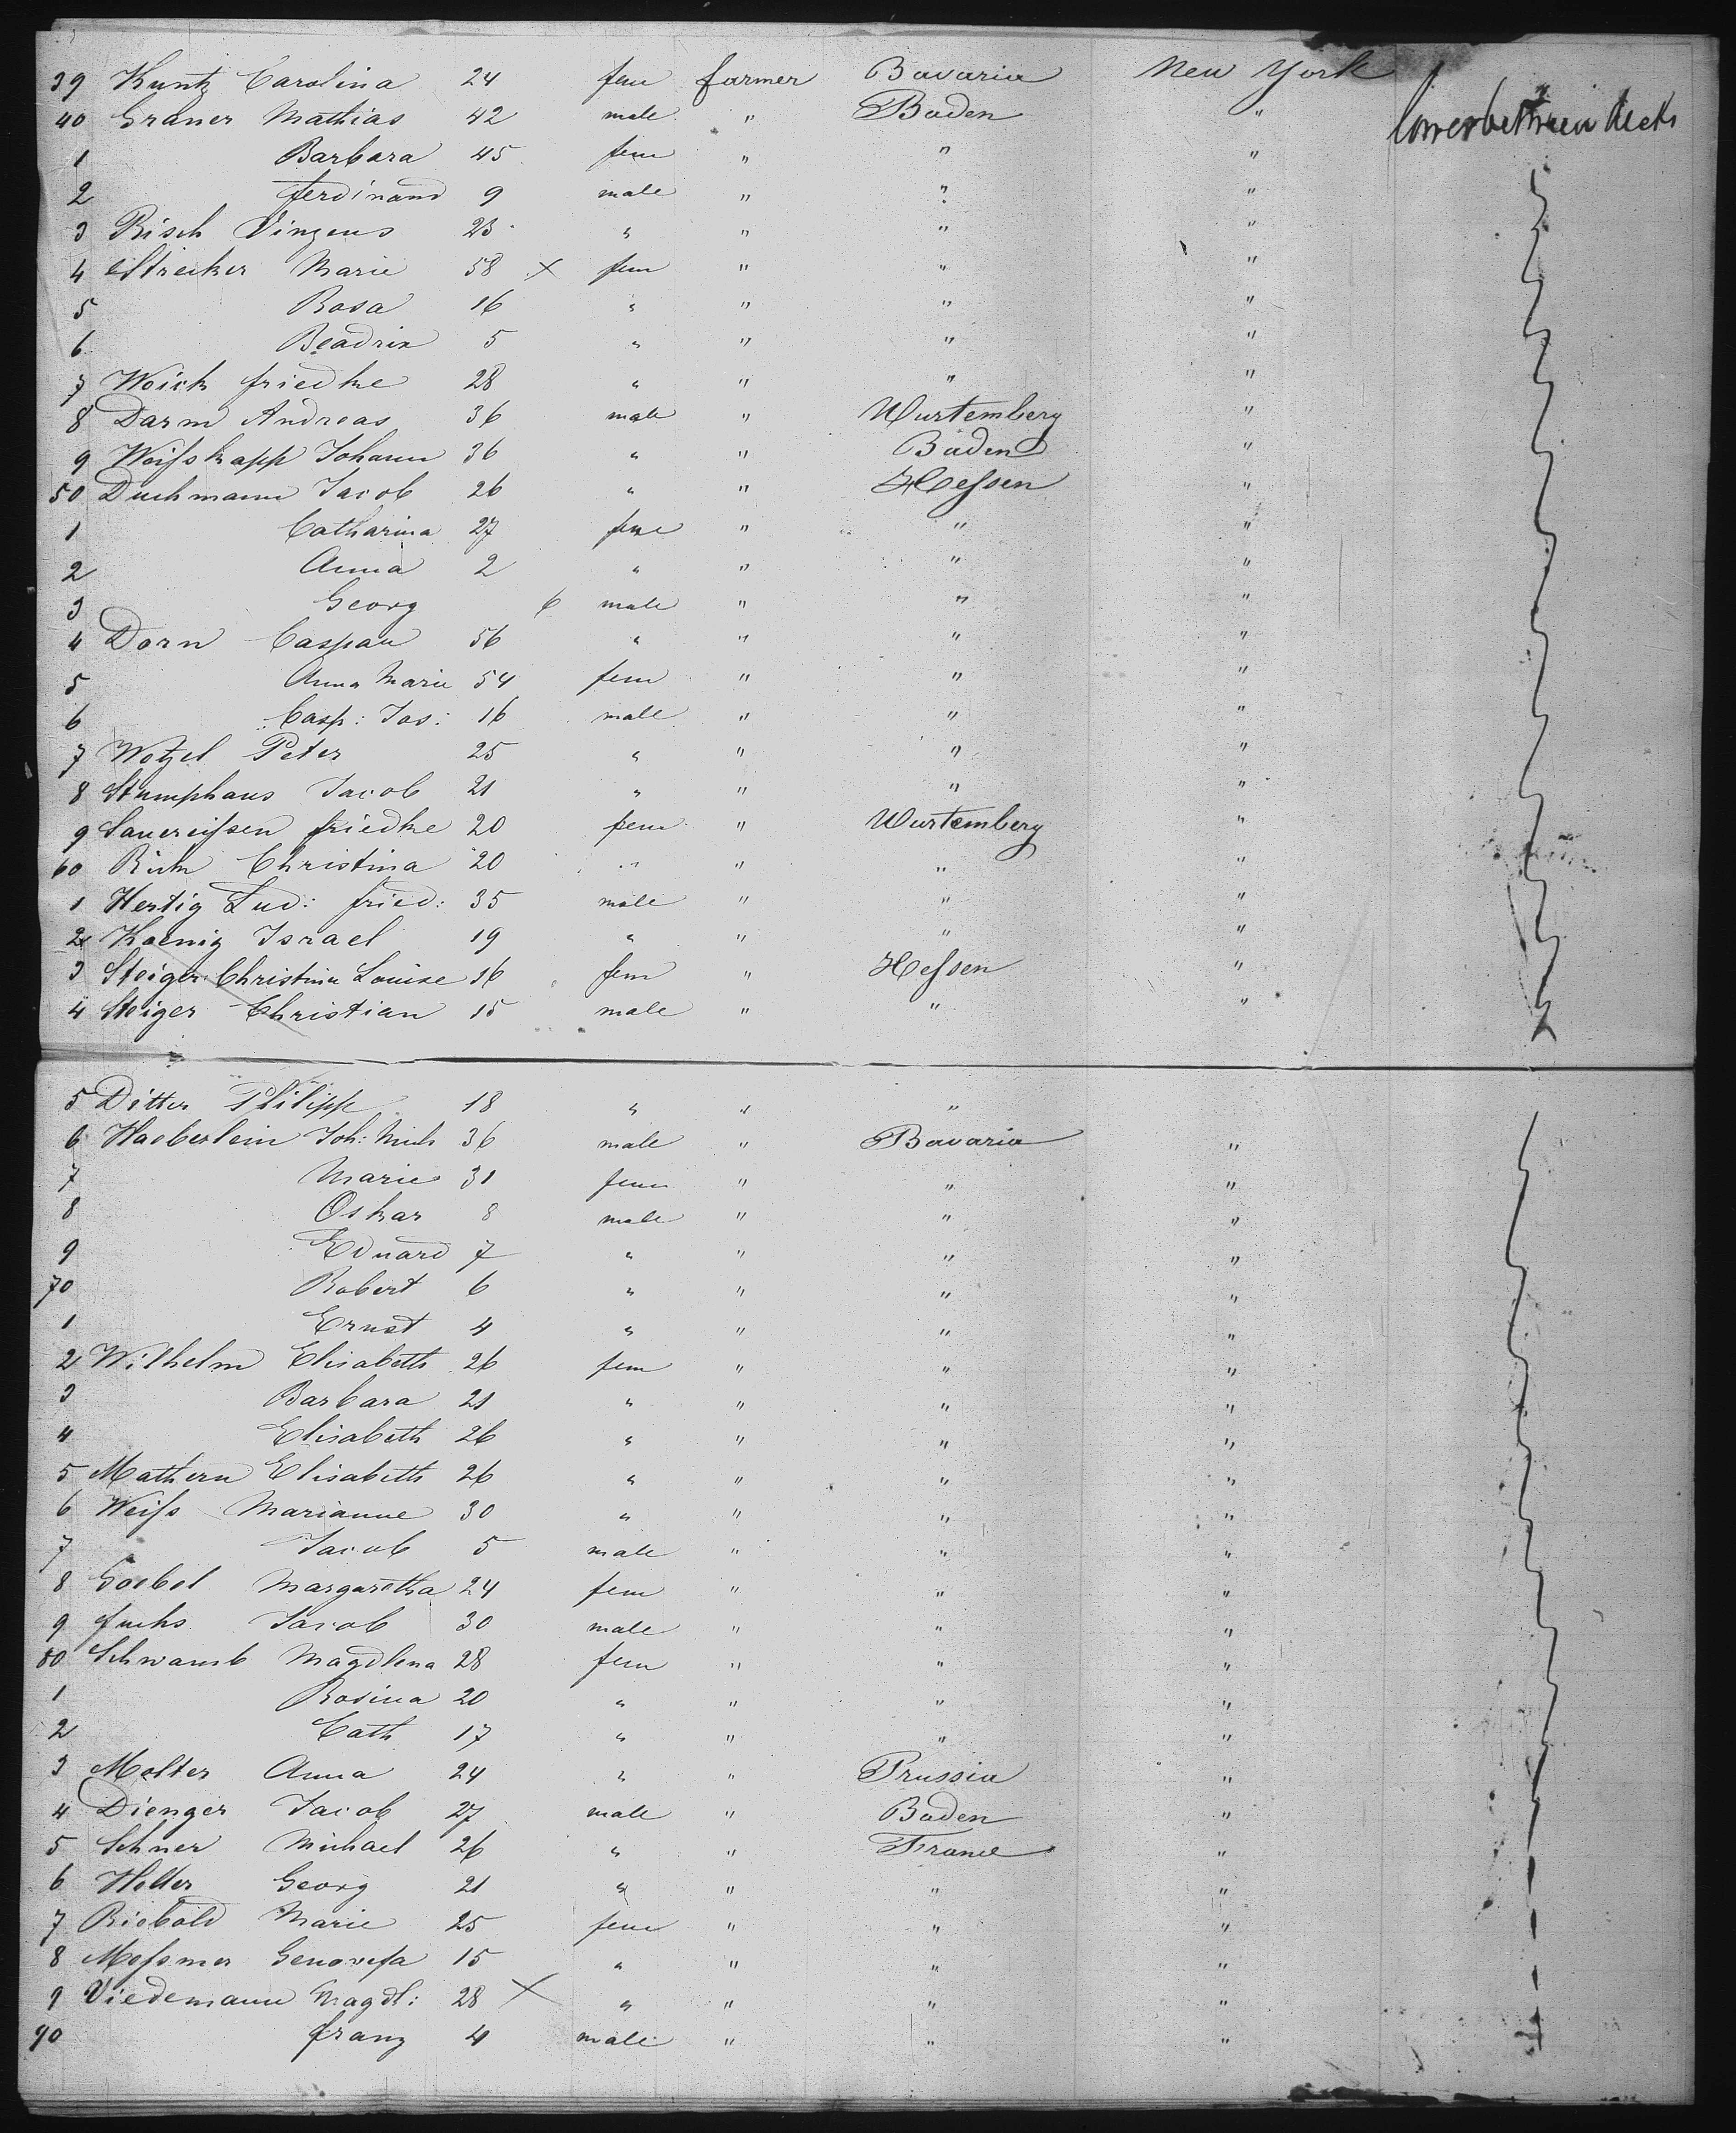 39 Kuntz Carolina 24 fem farmer Bavaria New York
40 Graner Mathias 42 male " Baden " lower between decks
1 Barbara 45 fem " " "
2 Ferdinand 9 male " " "
3 Risch Vinzens 23 " " " "
4 Strecker Marie 58 X fem " " "
5 Rosa 16 " " " "
6 Beadrix 5 " " " "
7 Woick Friedke 28 " " " "
8 Darm Andreas 36 male " Wurtemberg "
9 Weiſskapp Johann 36 " " Baden "
50 Duchmann Jacob 26 " " Heſsen "
1 Catharina 27 fem " " "
2 Anna 2 " " " "
3 Georg 6 male " " "
4 Dorn Caspau 56 " " " "
5 Anna Marie 54 fem " " "
6 Casp: Jos: 16 male " " "
7 Wetzel Peter 25 " " " "
8 Stumphaus Jacob 21 " " " "
9 Sauereiſsen Friedke 20 fem " Wurtemberg "
60 Christina 20 " " " "
1 Hertig Lud: Fried: 35 male " " "
2 Koenig Israel 19 " " " "
3 Steiger Christina Louise 16 fem " Heſsen "
4 Steiger Christian 15 male " " "
5 Ditter Philipp 18 " " "
6 Haeberlein Joh: Mich 36 male " Bavaria "
7 Marie 31 fem " " "
8 Oskar 8 male " " "
9 Eduard 7 " " " "
70 Robert 6 " " " "
1 Ernst 4 " " " "
2 Wilhelm Elisabeth 26 fem " " "
3 Barbara 21 " " " "
4 Elisabeth 26 " " " "
5 Mathern Elisabeth 26 " " " "
6 Weiſs Marianne 30 " " " "
7 Jacob 5 male " " "
8 Goebel Margaretha 24 fem " " "
9 Fuchs Jacob 30 male " " "
80 Schwamb Magdlena 28 fem " " "
1 Rosina 20 " " " "
2 Cath 17 " " " "
3 Molter Anna 24 " " Prussia "
4 Dienger Jacob 27 male " Baden "
5 Schner Michael 26 " " France "
6 Holter Georg 21 " " " "
7 Riebold Marie 25 fem " " "
8 Meſsmer Genovefa 15 " " " "
9 Viedemann Magdl: 28 X " " " "
90 Franz 4 male " " "